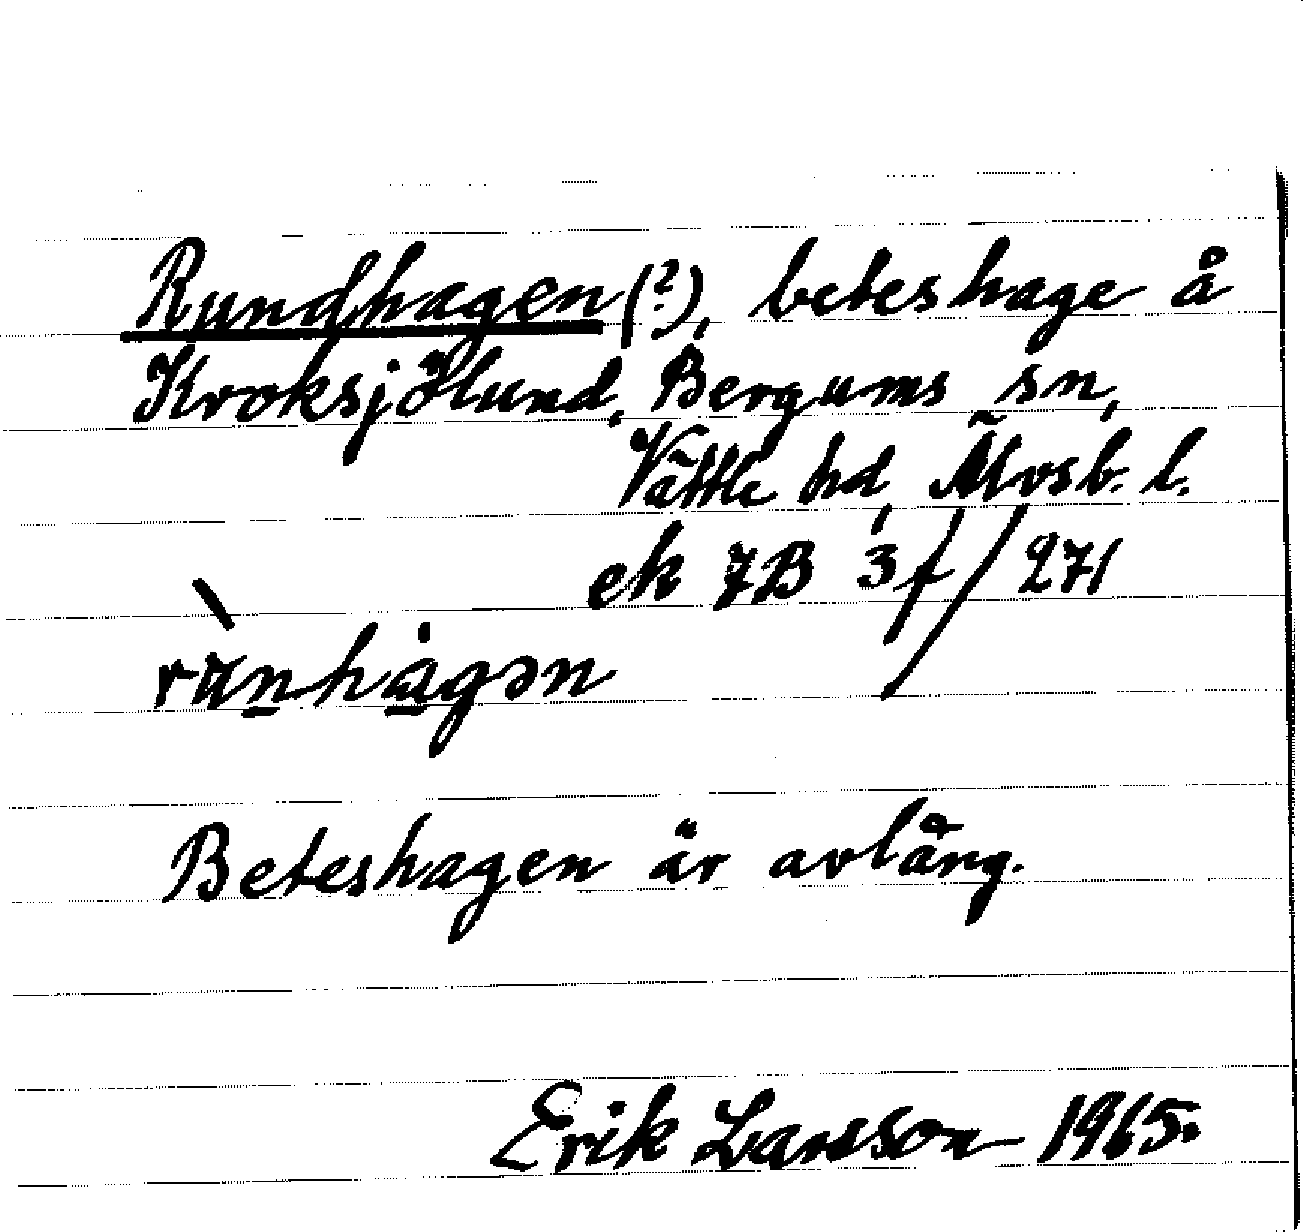 Rundhagen (?), beteshage å
Kroksjölund, Bergums sn,
Vättle hd, Älvsb. l.
ek 7B 3f/271
rùnhágən
Beteshagen är avlång.
Erik Larsson 1965.